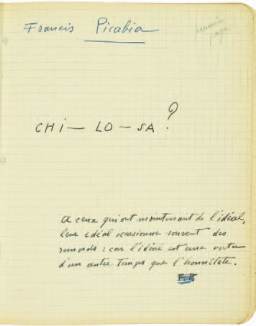 Francis Picabia
première
page
CHI — LO — SA ?
A ceux qui ont maintenant de l'idéal,
leur idéal occasionne souvent des
remords : car l'idéal est une vertu
d'un autre temps que l'honnêteté.